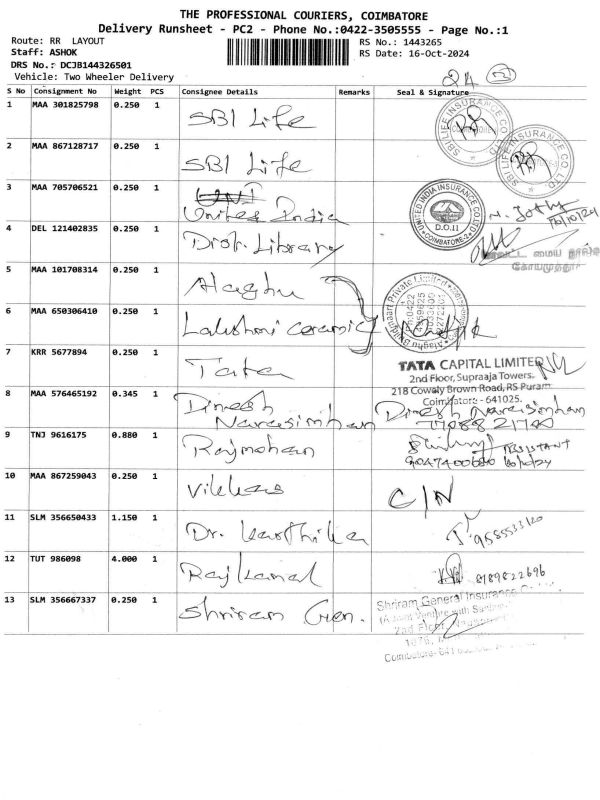 THE PROFESSIONAL COURIERS, COIMBATORE
Delivery Runsheet - PC2 - Phone No.:0422-3505555 - Page No.:1
Route: RR LAYOUT
RS No.: 1443265
Staff: ASHOK
RS Date: 16-Oct-2024
DRS No.: DCJB144326501
Vehicle: Two Wheeler Delivery
24
S No Consignment No Weight PCS Consignee Details Remarks Seal & Signature
1 MAA 301825798 0.250 1 SBI Life
SBI LIFE INSURANCE CO. LTD
2 MAA 867128717 0.250 1 SBI Life
SBI LIFE INSURANCE CO. LTD
3 MAA 705706521 0.250 1 United India
UNITED INDIA INSURANCE CO. LTD
D.O.II
COIMBATORE-2
4 DEL 121402835 0.250 1 Distt. Library
மைய நூல
கோயமுத்தூர்
5 MAA 101708314 0.250 1 Alaghu
Private Limited
6 MAA 650306410 0.250 1 Lakshmi Ceramics
7 KRR 5677894 0.250 1 Tata
TATA CAPITAL LIMITED
2nd Floor, Supraaja Towers,
218 Cowely Brown Road, RS Puram
Coimbatore - 641025.
8 MAA 576465192 0.345 1 Dinesh Narasimhan
Dinesh Narasimhan
9 TNJ 9616175 0.880 1 Rajmohan
ASSISTANT
10 MAA 867259043 0.250 1 Vikkas
C/N
11 SLM 356650433 1.150 1 Dr. Karthika
12 TUT 986098 4.000 1 Rajkamal
8189822696
13 SLM 356667337 0.250 1 Shriram Gen.
Shriram General Insurance
2nd Floor,